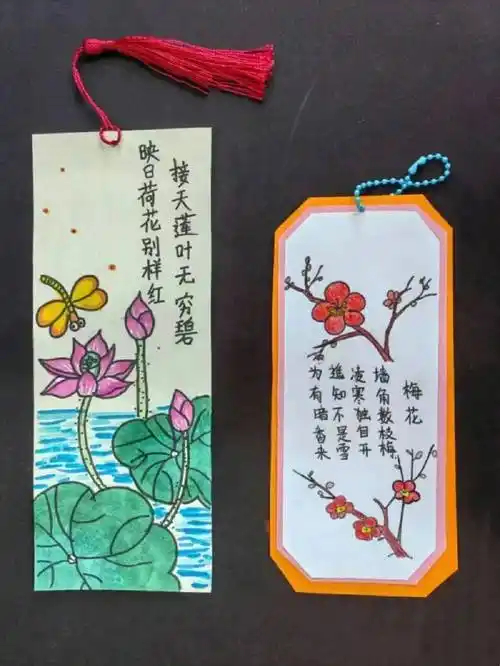 接天莲叶无穷碧
映日荷花别样红
梅花
墙角数枝梅
凌寒独自开
遥知不是雪
为有暗香来